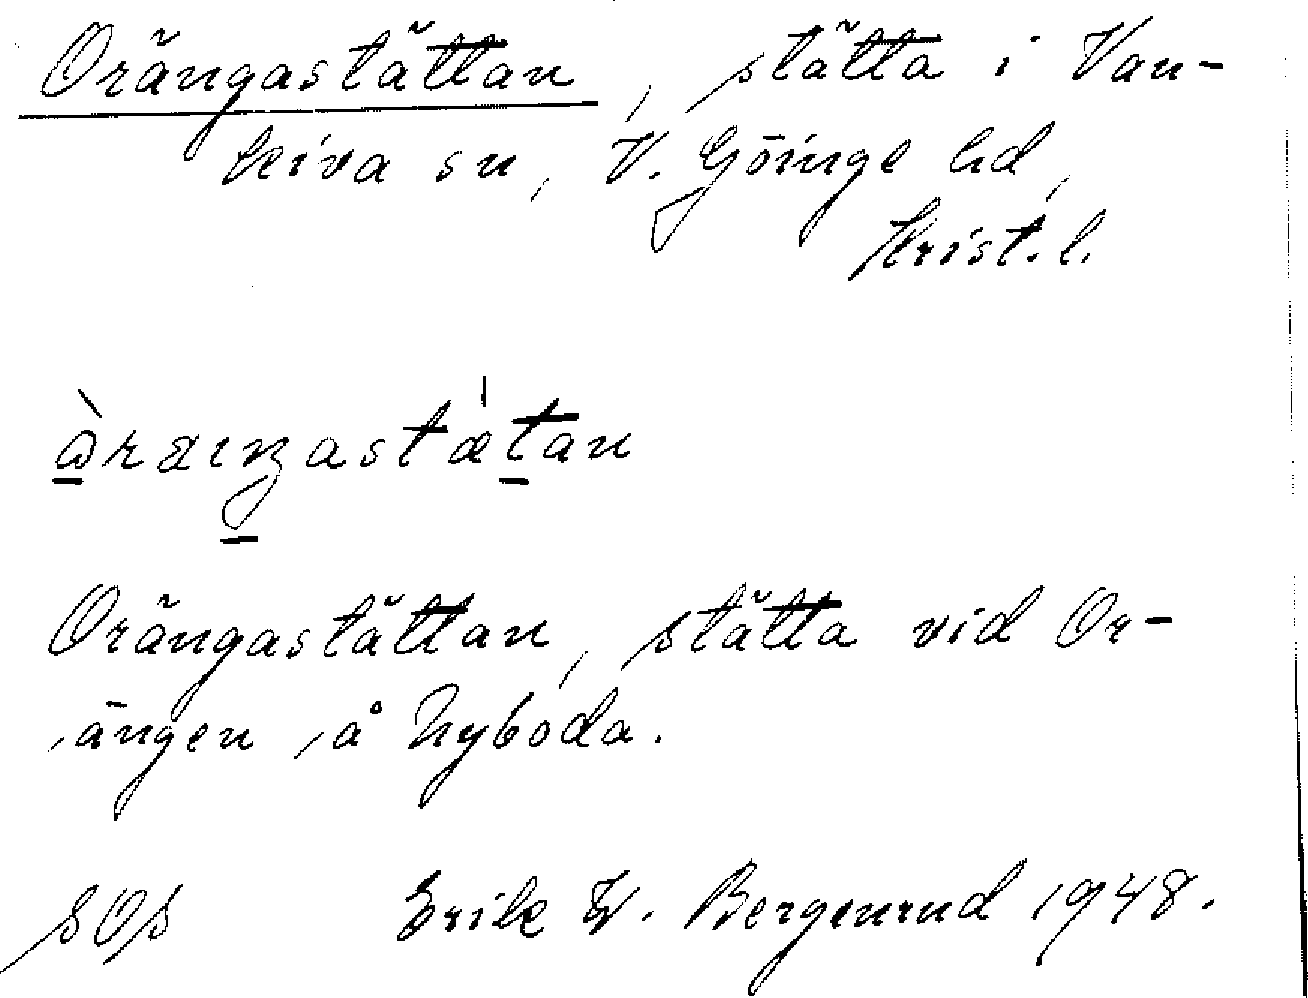 Orängastättan, stätta i Van-
keiva sn, V. Göinge hd,
Krist. l.
àræıŋastæ̍tan
Orängastättan, stätta vid Or-
ängen å Nyboda.
SOS Erik W. Bergenrud 1948.